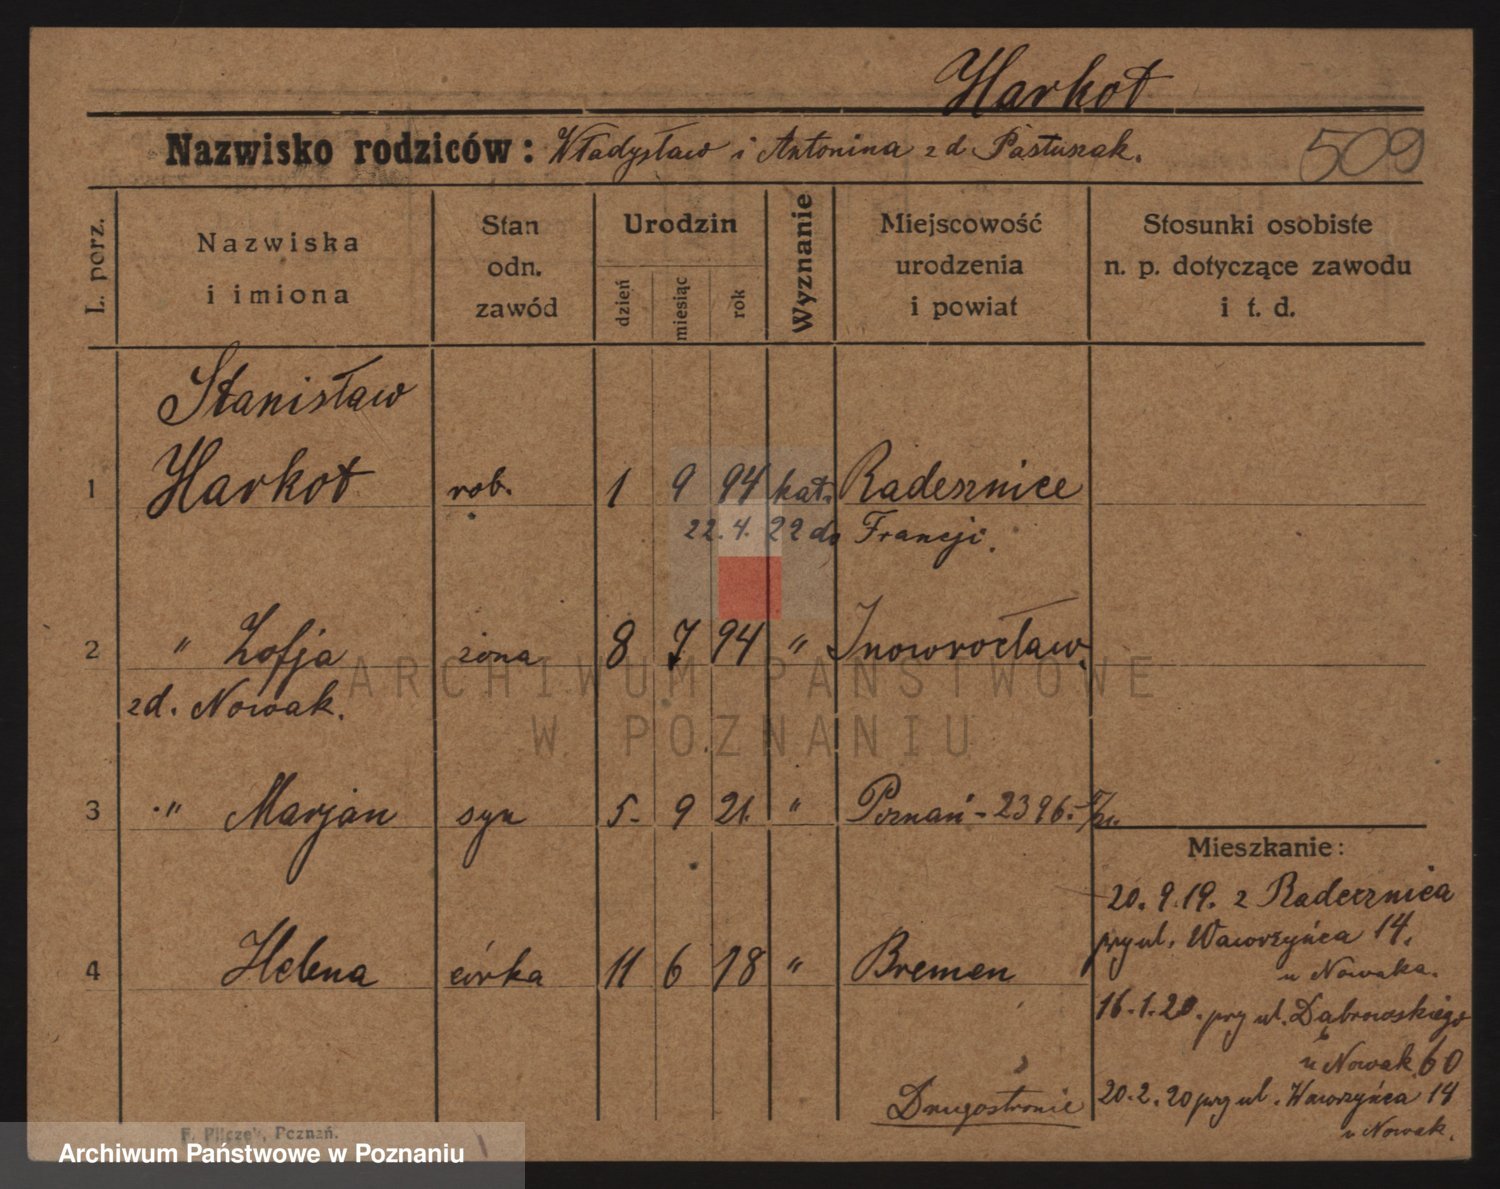 Harkot
Nazwisko rodziców: Władysław i Antonina z d Pastuszak.
509
L. porz.
Nazwiska
i imiona
Stan
odn.
zawód
Urodzin
dzień
miesiąc
rok
Wyznanie
Miejscowość
urodzenia
i powiat
Stosunki osobiste
n. p. dotyczące zawodu
i t. d.
Stanisław
1 Harkot rob. 1 9 94 kat. Radesznice
22. 4. 22 do Francji.
2 " Zofja żona 8 7 94 " Inowrocław.
zd. Nowak.
3 " Marjan syn 5. 9 21. " Poznań - 2396.
Mieszkanie:
20. 9. 19. z Radecznica
przy ul. Wawrzyńca 14.
u Nowaka.
4 Helena córka 11 6 18 " Bremen
16. 1. 20. przy ul. Dąbrowskiego
u Nowak 60
20. 2. 20 przy ul. Wawrzyńca 14
u Nowak.
Drugostronie
F. Pilczek, Poznań.
ARCHIWUM PAŃSTWOWE
W POZNANIU
Archiwum Państwowe w Poznaniu